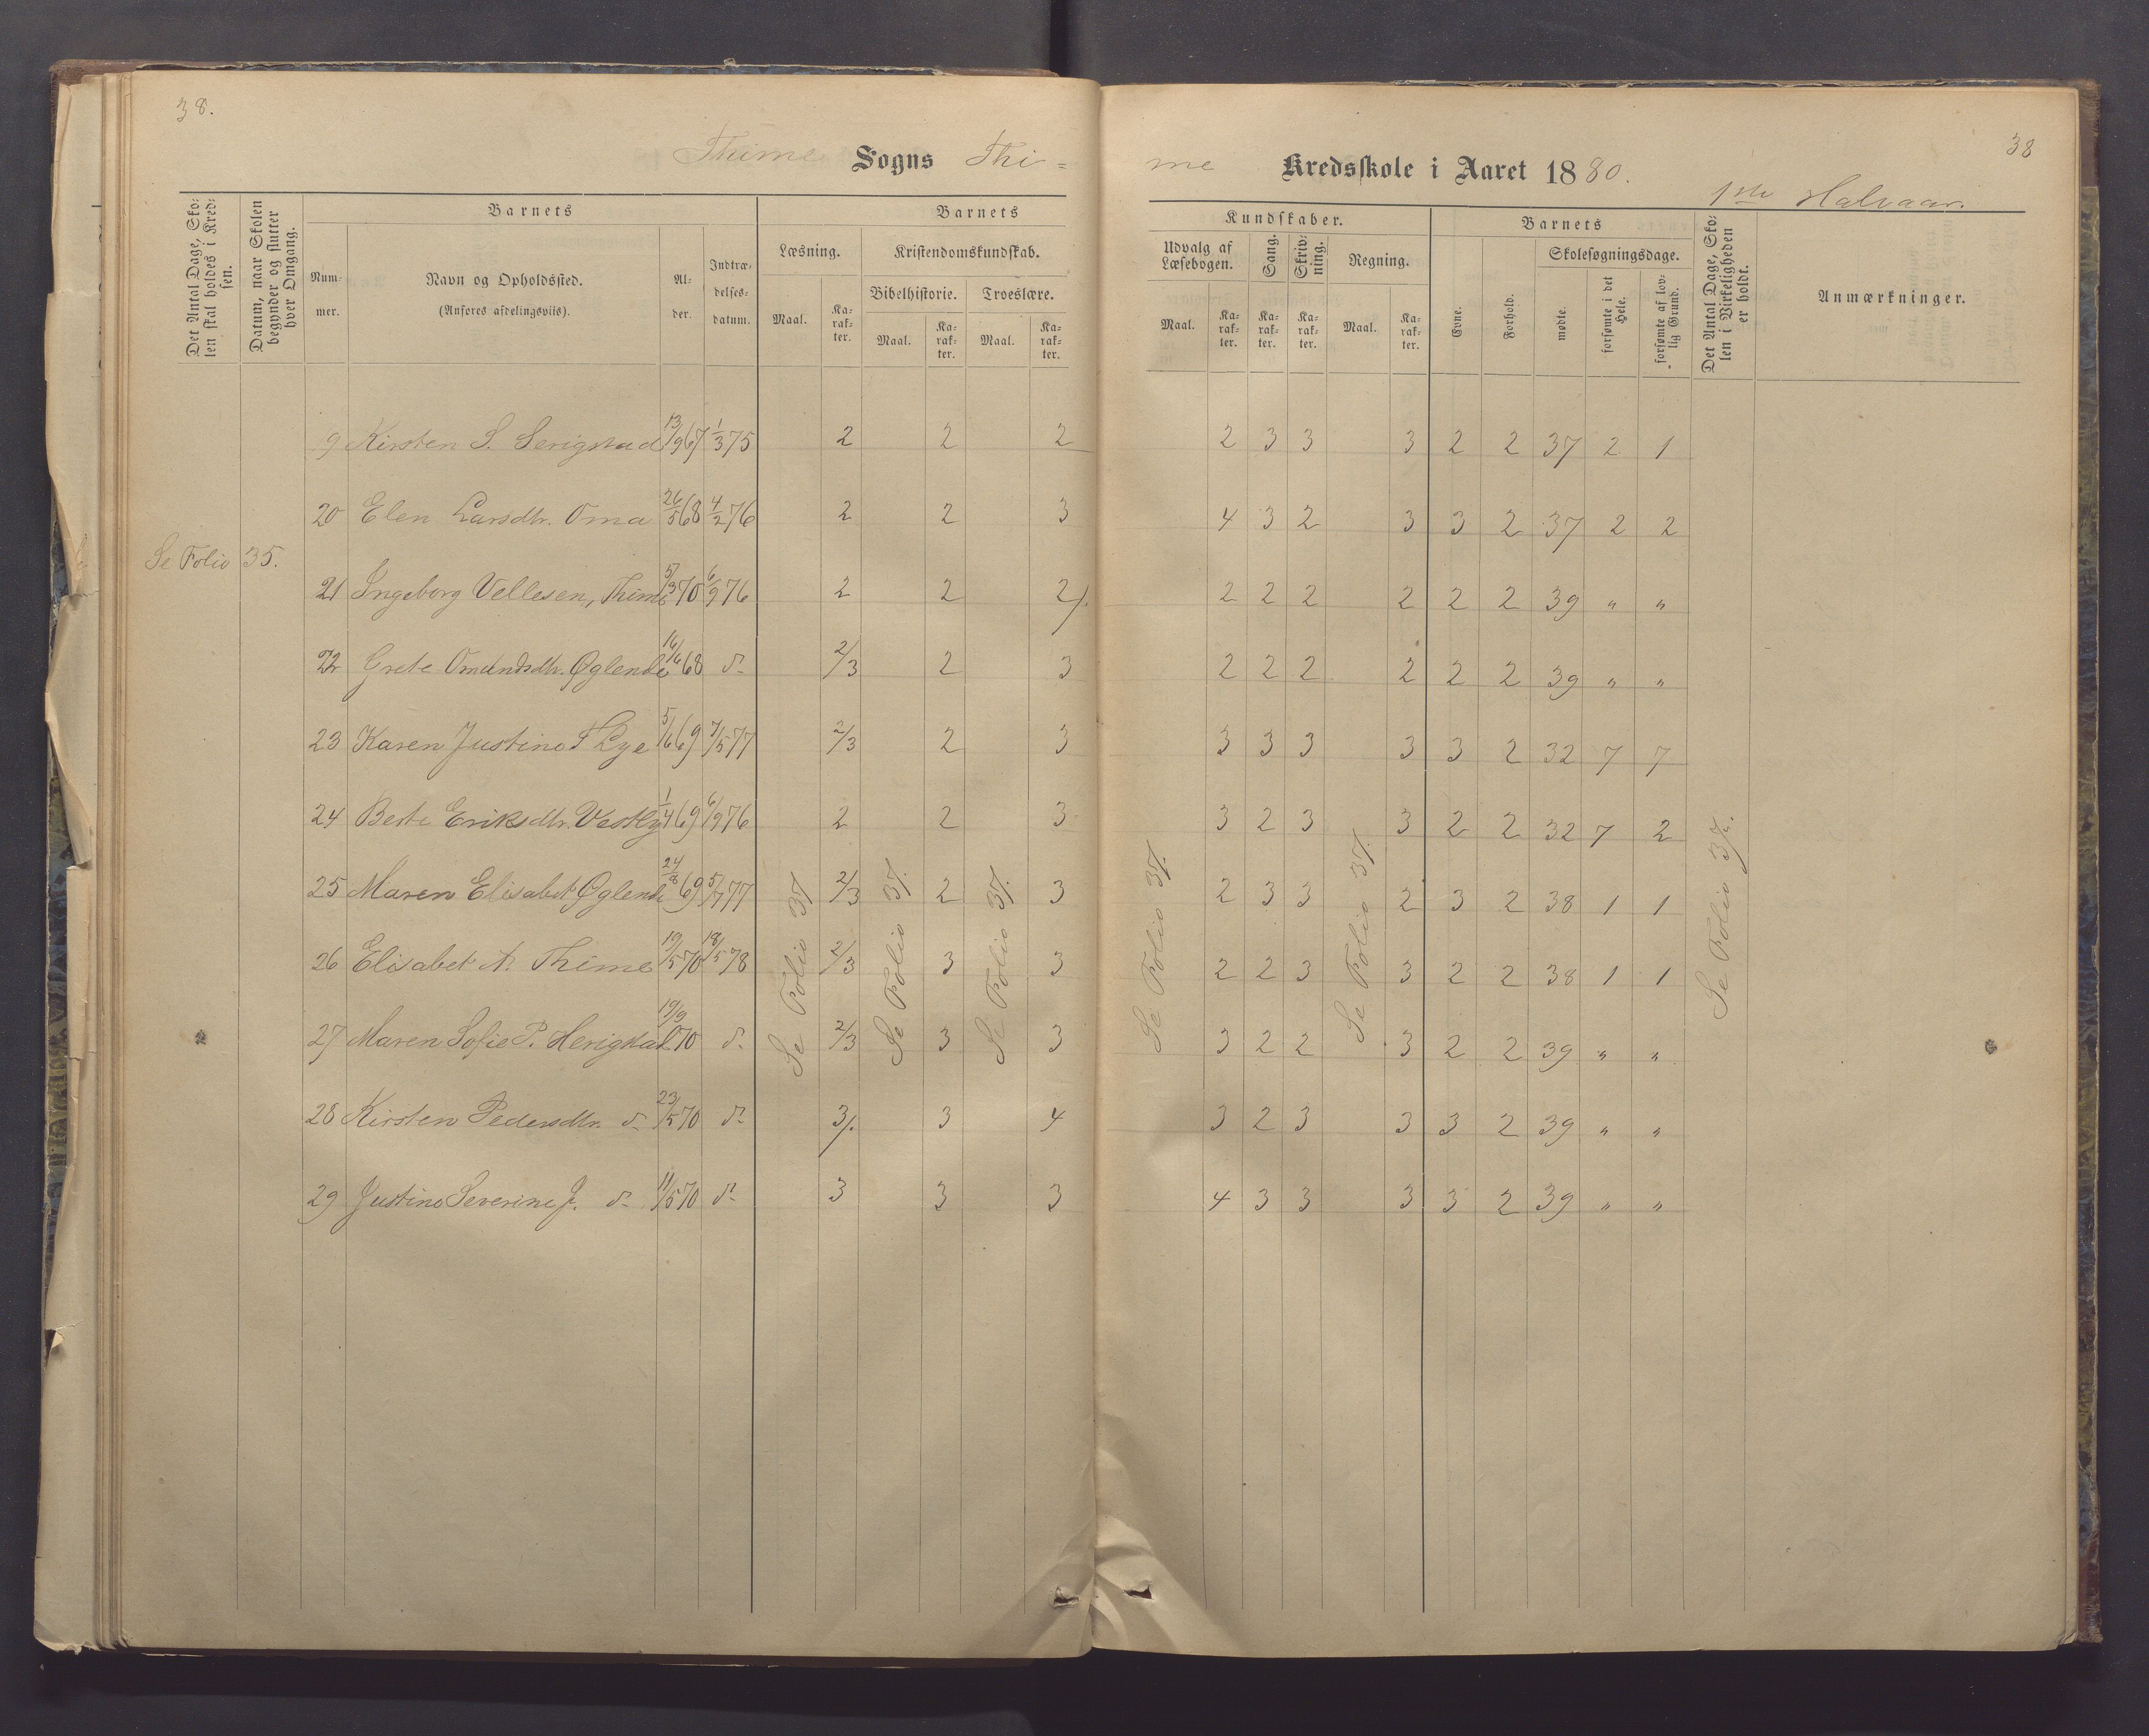 38.
38
Thime Sogns Thi=me Kredsskole i Aaret 1880.
1ste Halvaar.
Det Antal Dage, Skolen skal holdes i Kredsen.
Datum, naar Skolen begynder og slutter hver Omgang.
Barnets
Nummer.
Navn og Opholdssted.
(Anføres afdelingsviis).
Alder.
Indtrædelsesdatum.
Barnets
Læsning.
Kristendomskundskab.
Bibelhistorie.
Troeslære.
Maal.
Karakter.
Maal.
Karakter.
Maal.
Karakter.
Kundskaber.
Udvalg af Læsebogen.
Sang.
Skrivning.
Regning.
Maal.
Karakter.
Karakter.
Karakter.
Maal.
Karakter.
Barnets
Evne.
Forhold.
Skolesøgningsdage.
mødte.
forsømte i det Hele.
forsømte af lovlig Grund.
Det Antal Dage, Skolen i Virkeligheden er holdt.
Anmærkninger.
9 Kirsten S. Serigstad 13/9 67 1/3 75 2 2 2 2 3 3 3 2 2 37 2 1
20 Elen Larsdtr. Oma 26/5 68 4/2 76 2 2 3 4 3 2 3 3 2 37 2 2
Se Folio 35.
21 Ingeborg Vellesen, Thime 5/3 70 6/9 76 2 2 2/. 2 2 2 2 2 2 39 " "
22 Grete Omundsdtr. Øglend 16/6 68 d° 2/3 2 3 2 2 2 2 2 2 39 " "
23 Karen Justine T Lye 5/6 69 7/5 77 2/3 2 3 3 3 3 3 3 2 32 7 7
24 Berte Eriksdtr. Vestly 1/4 69 6/9 76 2 2 3 3 2 3 3 2 2 32 7 2
25 Maren Elisabet Øglend 24/8 69 5/7 77 2/3 2 3 2 3 3 2 3 2 38 1 1
26 Elisabet A. Thime 19/5 70 18/5 78 2/3 3 3 2 2 3 3 2 2 38 1 1
27 Maren Sofie P. Herigstad 19/9 70 d° 2/3 3 3 3 2 2 3 2 2 39 " "
28 Kirsten Pedersdtr. d° 23/5 70 d° 3/. 3 4 3 2 3 3 3 2 39 " "
29 Justine Severine J. d° 11/5 70 d° 3 3 3 4 3 3 3 3 2 39 " "
Se Folio 37
Se Folio 37.
Se Folio 37.
Se Folio 37.
Se Folio 37.
Se Folio 37.